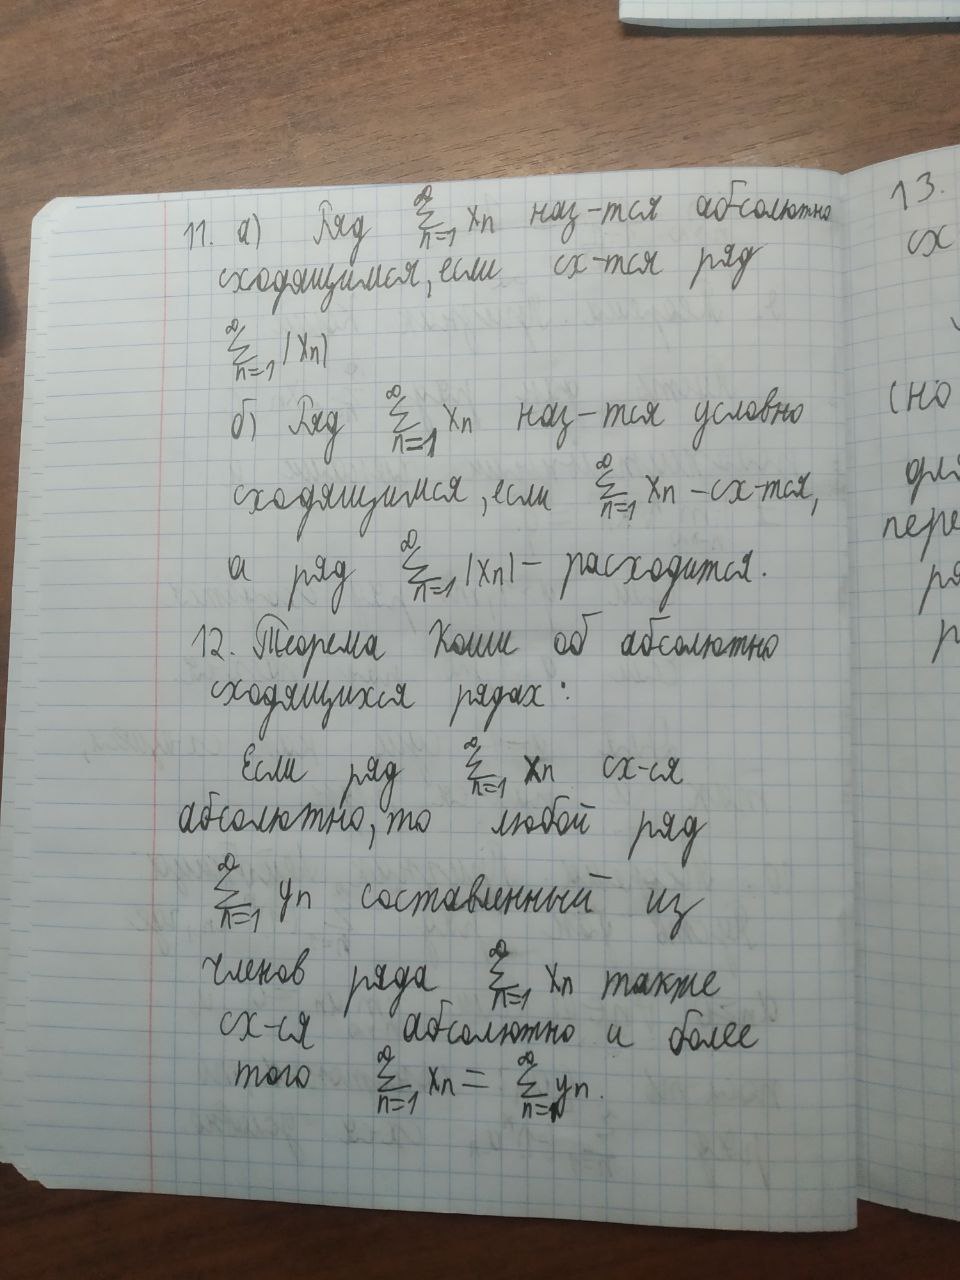 11. а) Ряд ∑_{n=1}^{∞} xₙ наз-тся абсолютно
сходящимся, если сх-тся ряд
∑_{n=1}^{∞} |xₙ|
б) Ряд ∑_{n=1}^{∞} xₙ наз-тся условно
сходящимся, если ∑_{n=1}^{∞} xₙ - сх-тся,
а ряд ∑_{n=1}^{∞} |xₙ| - расходится.
12. Теорема Коши об абсолютно
сходящихся рядах:
Если ряд ∑_{n=1}^{∞} xₙ сх-ся
абсолютно, то любой ряд
∑_{n=1}^{∞} yₙ составленный из
членов ряда ∑_{n=1}^{∞} xₙ также
сх-ся абсолютно и более
того ∑_{n=1}^{∞} xₙ = ∑_{n=1}^{∞} yₙ.
13.
сх
(но
для
пере
ря
р